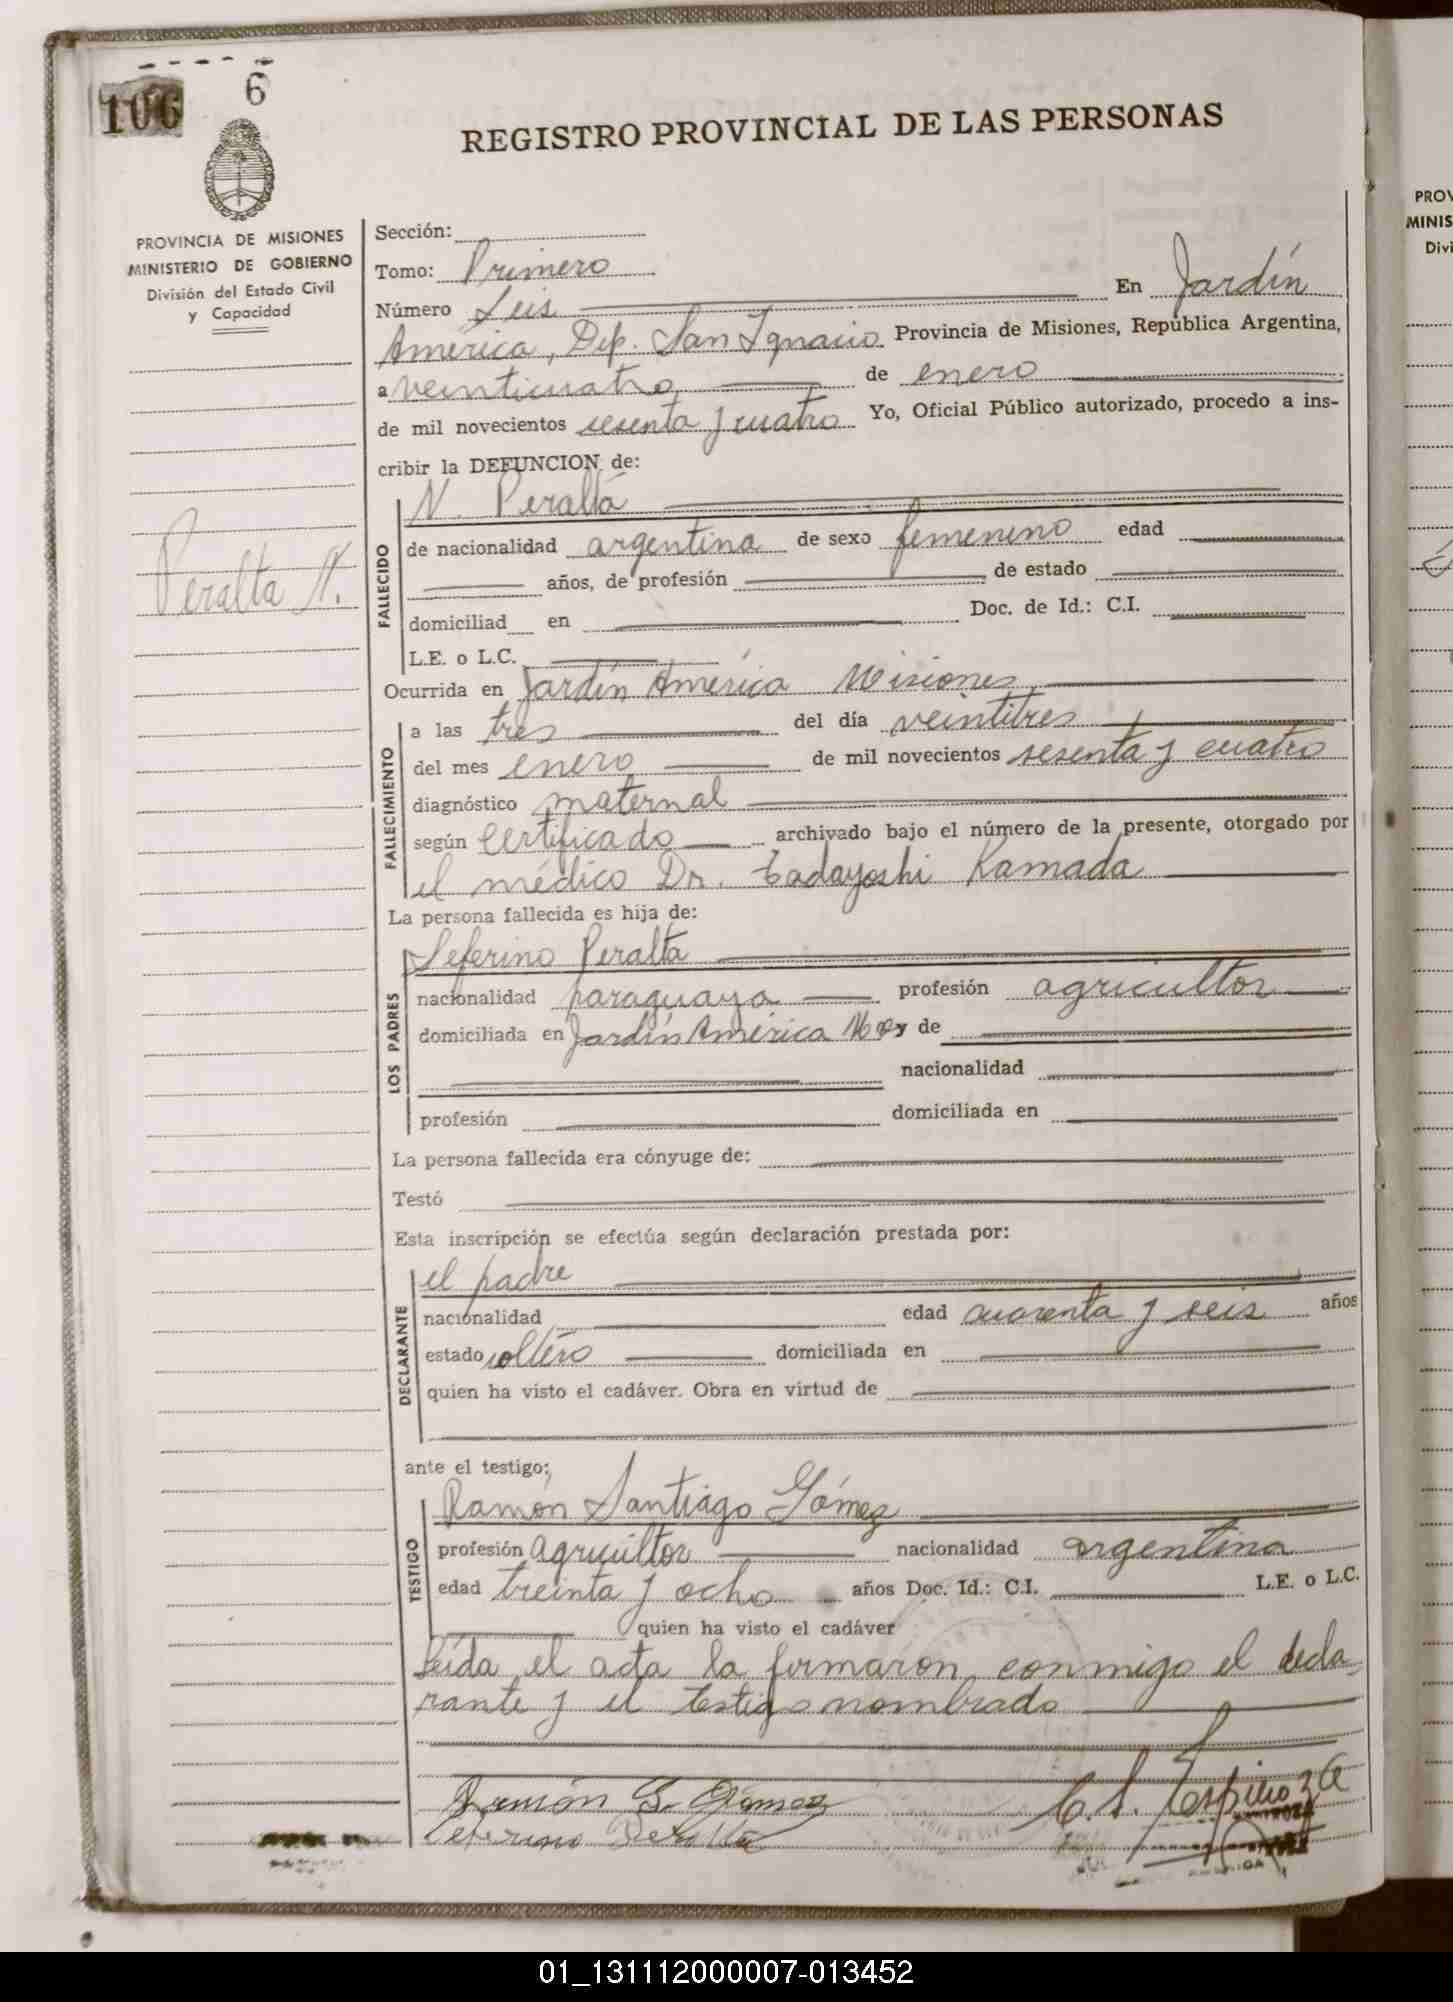 106
6
REGISTRO PROVINCIAL DE LAS PERSONAS
PROVINCIA DE MISIONES
MINISTERIO DE GOBIERNO
División del Estado Civil
y Capacidad
Sección:
Tomo: Primero
Número Seis En Jardín
América, Dep. San Ignacio Provincia de Misiones, República Argentina,
a veinticuatro de enero
de mil novecientos sesenta y cuatro Yo, Oficial Público autorizado, procedo a ins-
cribir la DEFUNCION de:
Peralta N.
FALLECIDO
N. Peralta
de nacionalidad argentina de sexo femenino edad
años, de profesión de estado
domiciliad en Doc. de Id.: C.I.
L.E. o L.C.
Ocurrida en Jardín América Misiones
FALLECIMIENTO
a las tres del día veintitres
del mes enero de mil novecientos sesenta y cuatro
diagnóstico maternal
según certificado archivado bajo el número de la presente, otorgado por
el médico Dr. Tadayoshi Kamada
La persona fallecida es hija de:
LOS PADRES
Seferino Peralta
nacionalidad paraguaya profesión agricultor
domiciliada en Jardín América y de
nacionalidad
profesión domiciliada en
La persona fallecida era cónyuge de:
Testó
Esta inscripción se efectúa según declaración prestada por:
DECLARANTE
el padre
nacionalidad edad cuarenta y seis años
estado soltero domiciliada en
quien ha visto el cadáver. Obra en virtud de
ante el testigo:
TESTIGO
Ramón Santiago Gómez
profesión agricultor nacionalidad argentina
edad treinta y ocho años Doc. Id.: C.I. L.E. o L.C.
quien ha visto el cadáver
Leída el acta la firmaron conmigo el decla-
rante y el testigo nombrado
Ramón S. Gomez
Seferino Peralta
PROV
MINIS
Divi
01_131112000007-013452